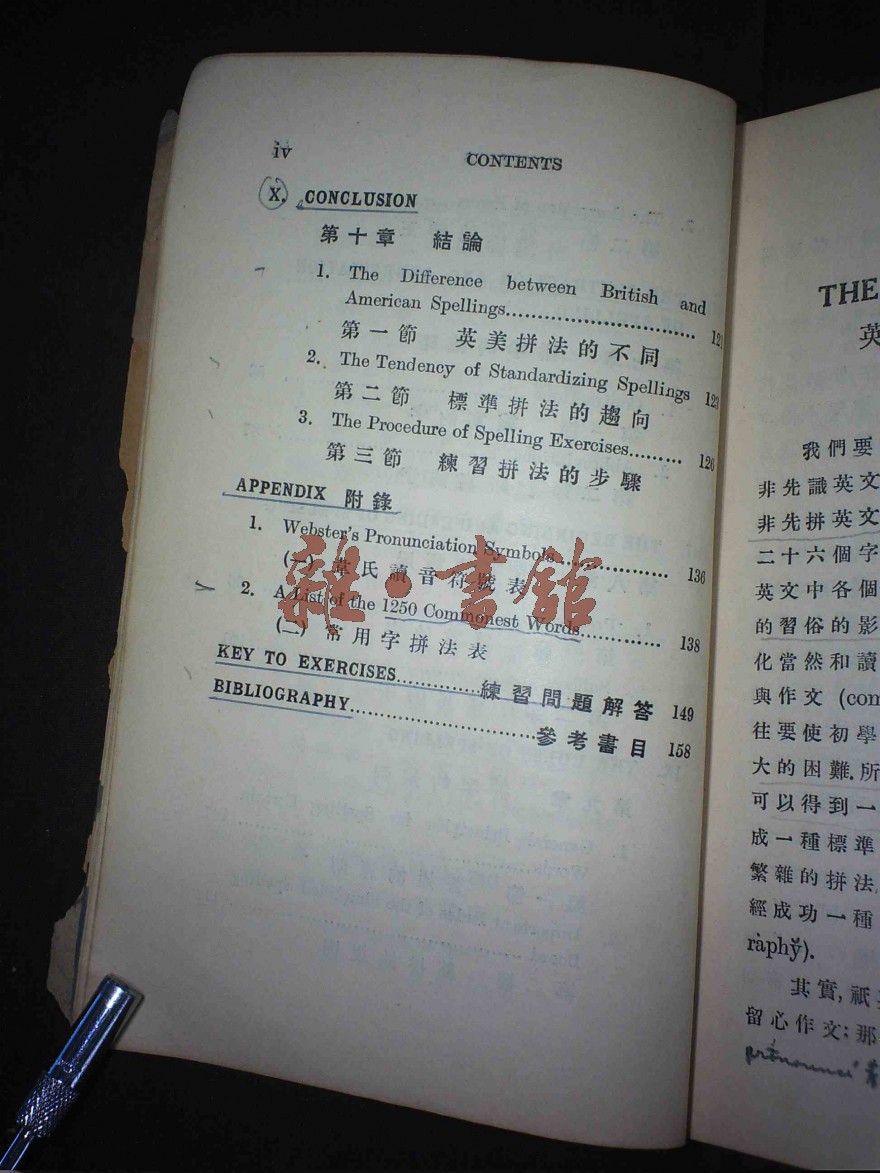 iv
CONTENTS
X. CONCLUSION
第十章 結論
1. The Difference between British and
American Spellings.............................. 121
第一節 英美拼法的不同
2. The Tendency of Standardizing Spellings 123
第二節 標準拼法的趨向
3. The Procedure of Spelling Exercises......... 126
第三節 練習拼法的步驟
APPENDIX 附錄
1. Webster's Pronunciation Symbols.................. 136
(一) 韋氏讀音符號表
2. A List of the 1250 Commonest Words............. 138
(二) 常用字拼法表
KEY TO EXERCISES..............練習問題解答 149
BIBLIOGRAPHY..............................參考書目 158
雜·書館
THE
英
我們要
非先識英文
非先拼英文
二十六個字
英文中各個
的習俗的影
化當然和讀
與作文 (com
往要使初學
大的困難.所
可以得到一
成一種標準
繁雜的拼法
經成功一種
ràphy̆).
其實,祇
留心作文;那